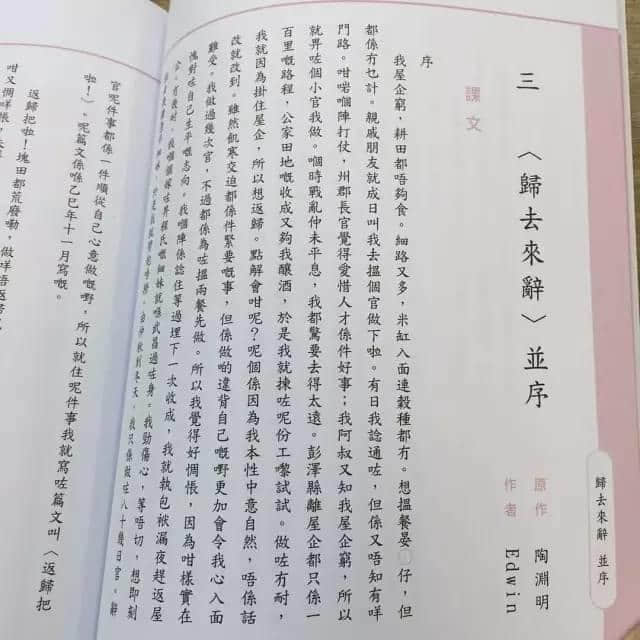 歸去來辭 並序
三 〈歸去來辭〉並序
原作 陶淵明
作者 Edwin
課文
序
我屋企窮,耕田都唔夠食。細路又多,米缸入面連穀種都冇。想搵餐晏仔,但
都係冇乜計。親戚朋友就成日叫我去搵個官做下啦。有日我諗通咗,但係又唔知有咩
門路。咁啱嗰陣打仗,州郡長官覺得愛惜人才係件好事;我阿叔又知我屋企窮,所以
就畀咗個小官我做。嗰時戰亂仲未平息,我都驚要去得太遠。彭澤縣離屋企都只係一
百里嘅路程,公家田地嘅收成又夠我釀酒,於是我就揀咗呢份工嚟試試。做咗冇耐,
我就因為掛住屋企,所以想返歸。點解會咁呢?呢個係因為我本性中意自然,唔係話
改就改到。雖然飢寒交迫都係件緊要嘅事,但係做啲違背自己嘅嘢更加會令我心入面
難受。我做過幾次官,不過都係為咗搵兩餐先做。所以我覺得好惆悵,因為咁樣實在
愧對咗自己生平嘅志向。我嗰陣係諗住等過埋下一次收成,我就執包袱漏夜趕返屋
企。冇幾時,我嗰個嫁咗畀程氏嘅細妹就喺武昌過咗身。我勁傷心,等唔切,想即刻
由仲秋到冬天,我只係做咗八十幾日官。辭
官呢件事都係一件順從自己心意做嘅嘢,所以就住呢件事我就寫咗篇文叫〈返歸把
啦!〉。呢篇文係喺乙巳年十一月寫嘅。
返歸把啦!塊田都荒廢嘞,做咩唔返歸
咁又惆悵,